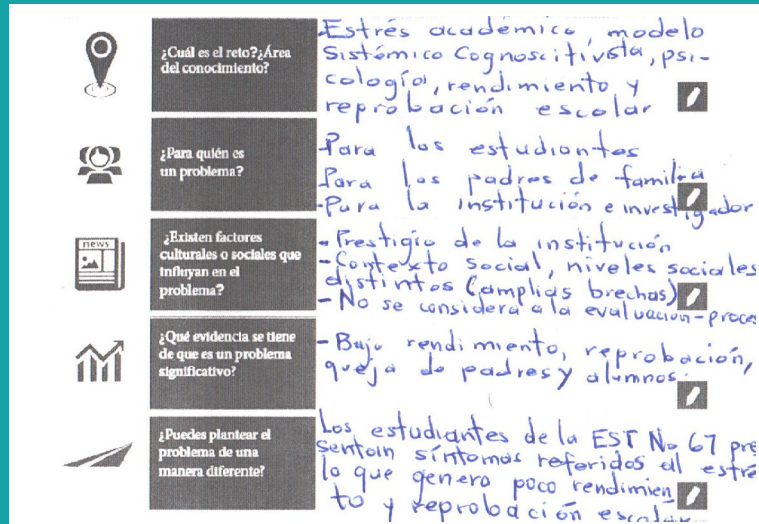 ¿Cuál es el reto?¿Área
del conocimiento?
-Estrés académico, modelo
Sistémico Cognoscitivista, psi-
cología, rendimiento y
reprobación escolar
¿Para quién es
un problema?
-Para los estudiantes
Para los padres de familia
-Para la institución e investigador
news
¿Existen factores
culturales o sociales que
influyan en el
problema?
-Prestigio de la institución
-Contexto social, niveles sociales
distintos (amplias brechas)
-No se considera a la evaluación-proces
¿Qué evidencia se tiene
de que es un problema
significativo?
-Bajo rendimiento, reprobación,
queja de padres y alumnos.
¿Puedes plantear el
problema de una
manera diferente?
Los estudiantes de la EST No 67 pre
sentain síntomas referidos al estré
lo que genera poco rendimien
to y reprobación escolar